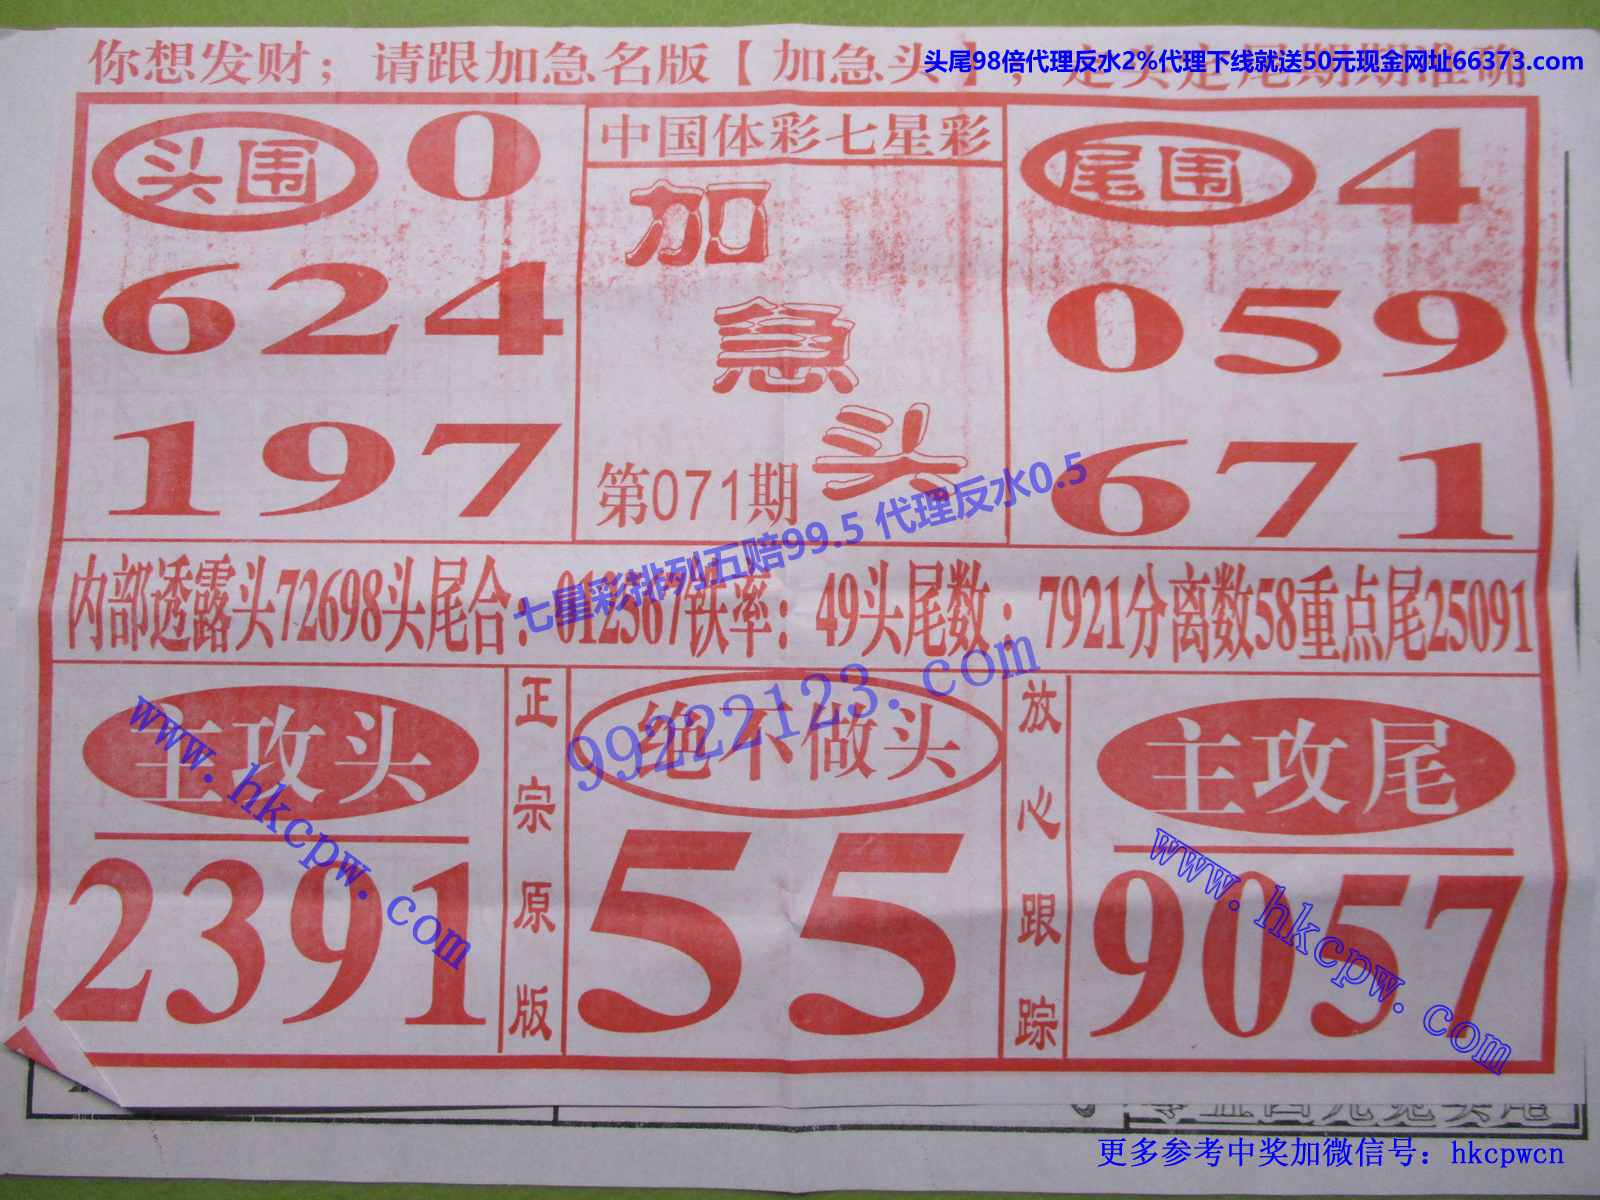 你想发财；请跟加急名版【加急头】，定头定尾期期准确
头尾98倍代理反水2%代理下线就送50元现金网址66373.com
头围 0
624
197
中国体彩七星彩
加急头
第071期
尾围 4
059
671
七星彩排列五赔99.5 代理反水0.5
内部透露头72698头尾合：012567铁率：49头尾数：7921分离数58重点尾25091
99222123.com
主攻头
2391
www.hkcpw.com
正宗原版
绝不做头
55
放心跟踪
主攻尾
9057
www.hkcpw.com
更多参考中奖加微信号：hkcpwcn